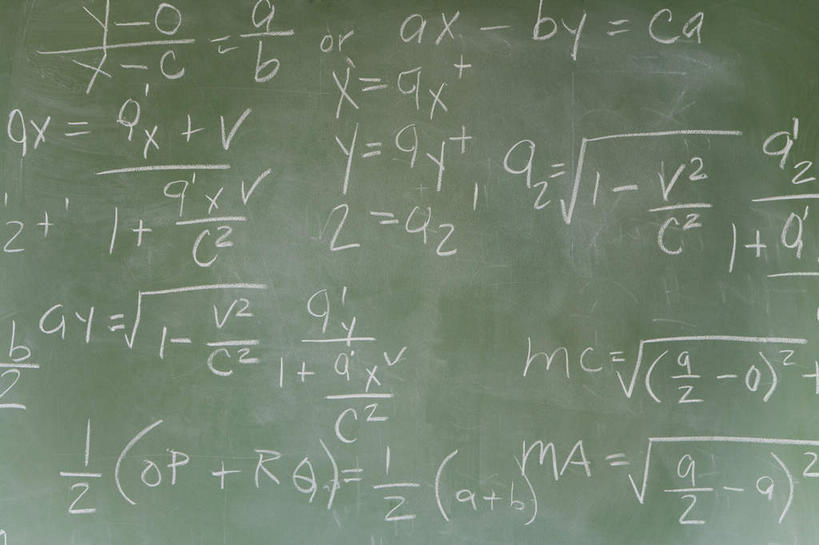 y-0/x-c = a/b or ax - by = ca
x = ax+
qx = (q'x + v)/(1 + q'xv/c²)
y = qy+
q2 = √(1 - v²/c²) q'2/(1 + q'
z = qz'
'2 + '
ay = √(1 - v²/c²) q'y/(1 + q'xv/c²)
b/2
mc = √((a/2 - 0)² +
1/2 (OP + RQ) = 1/2 (a+b)
mA = √(a/2 - a)²